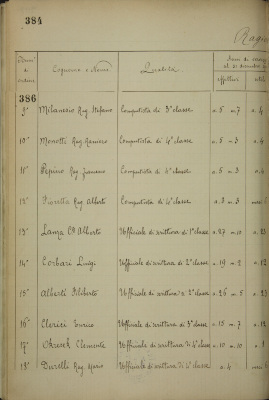 384
Ragio
Numº d'ordine Cognome e Nome Qualità Anni di servizio al 31 dicembre
effettivi utili
386
9º Milanesio Rag. Stefano Computista di 3ª classe a. 5 m. 7 a. 4
10º Monotti Rag. Computista di 4ª classe a. 5 m. 3 a. 4
11º Pepino Rag. Francesco Computista di 4ª classe a. 5 m. 3 a. 4
12º Rag. Alberto Computista di 4ª classe a. 3 m. 3
13º Lama Alberto Ufficiale di scrittura di 1ª classe a. 27 m. 10 a. 23
14º Corbari Luigi Ufficiale di scrittura di 2ª classe a. 19 m. 2 a. 12
15º Alberti Filiberto Ufficiale di scrittura di 2ª classe a. 26 m. 5 a. 23
16º Clerici Enrico Ufficiale di scrittura di 3ª classe a. 15 m. 7 a. 12
17º Clemente Ufficiale di scrittura di 4ª classe a. 10 m. 10 a. 8
18º Rag. Mario Ufficiale di scrittura di 4ª classe a. 4